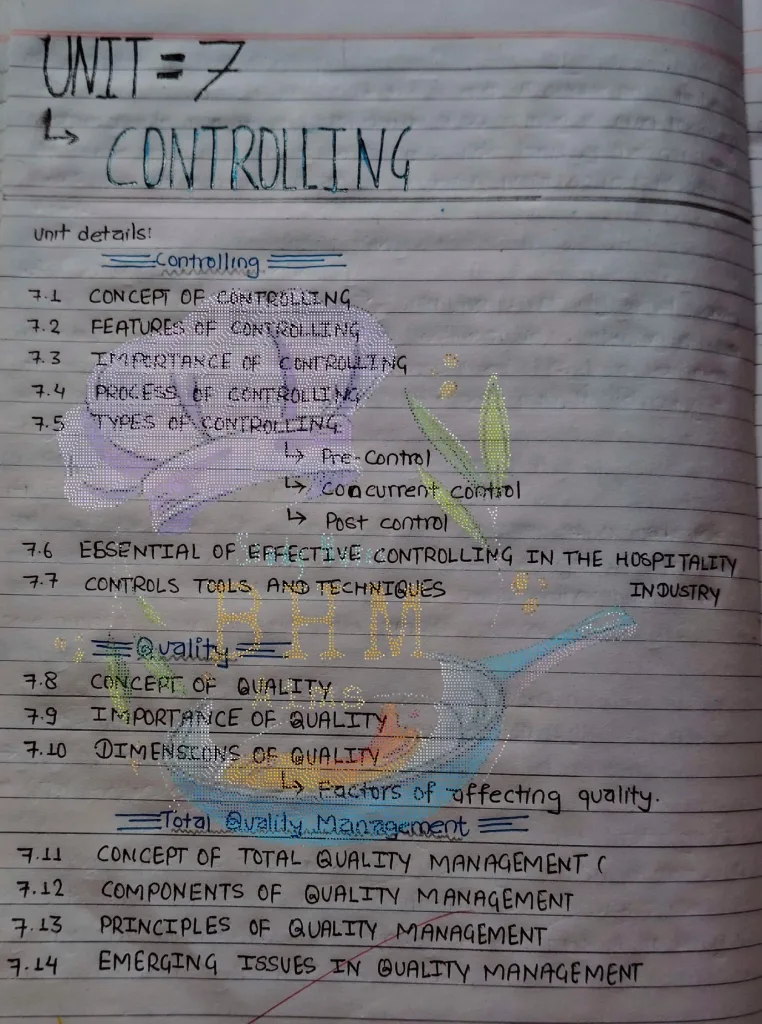 UNIT = 7
↳ CONTROLLING
unit details:
Controlling
7.1 CONCEPT OF CONTROLLING
7.2 FEATURES OF CONTROLLING
7.3 IMPORTANCE OF CONTROLLING
7.4 PROCESS OF CONTROLLING
7.5 TYPES OF CONTROLLING
↳ Pre-Control
↳ Concurrent control
↳ Post control
7.6 ESSENTIAL OF EFFECTIVE CONTROLLING IN THE HOSPITALITY
INDUSTRY
7.7 CONTROLS TOOLS AND TECHNIQUES
BHM
Quality
7.8 CONCEPT OF QUALITY
7.9 IMPORTANCE OF QUALITY
7.10 DIMENSIONS OF QUALITY
↳ Factors of affecting quality.
Total Quality Management
7.11 CONCEPT OF TOTAL QUALITY MANAGEMENT (
7.12 COMPONENTS OF QUALITY MANAGEMENT
7.13 PRINCIPLES OF QUALITY MANAGEMENT
7.14 EMERGING ISSUES IN QUALITY MANAGEMENT